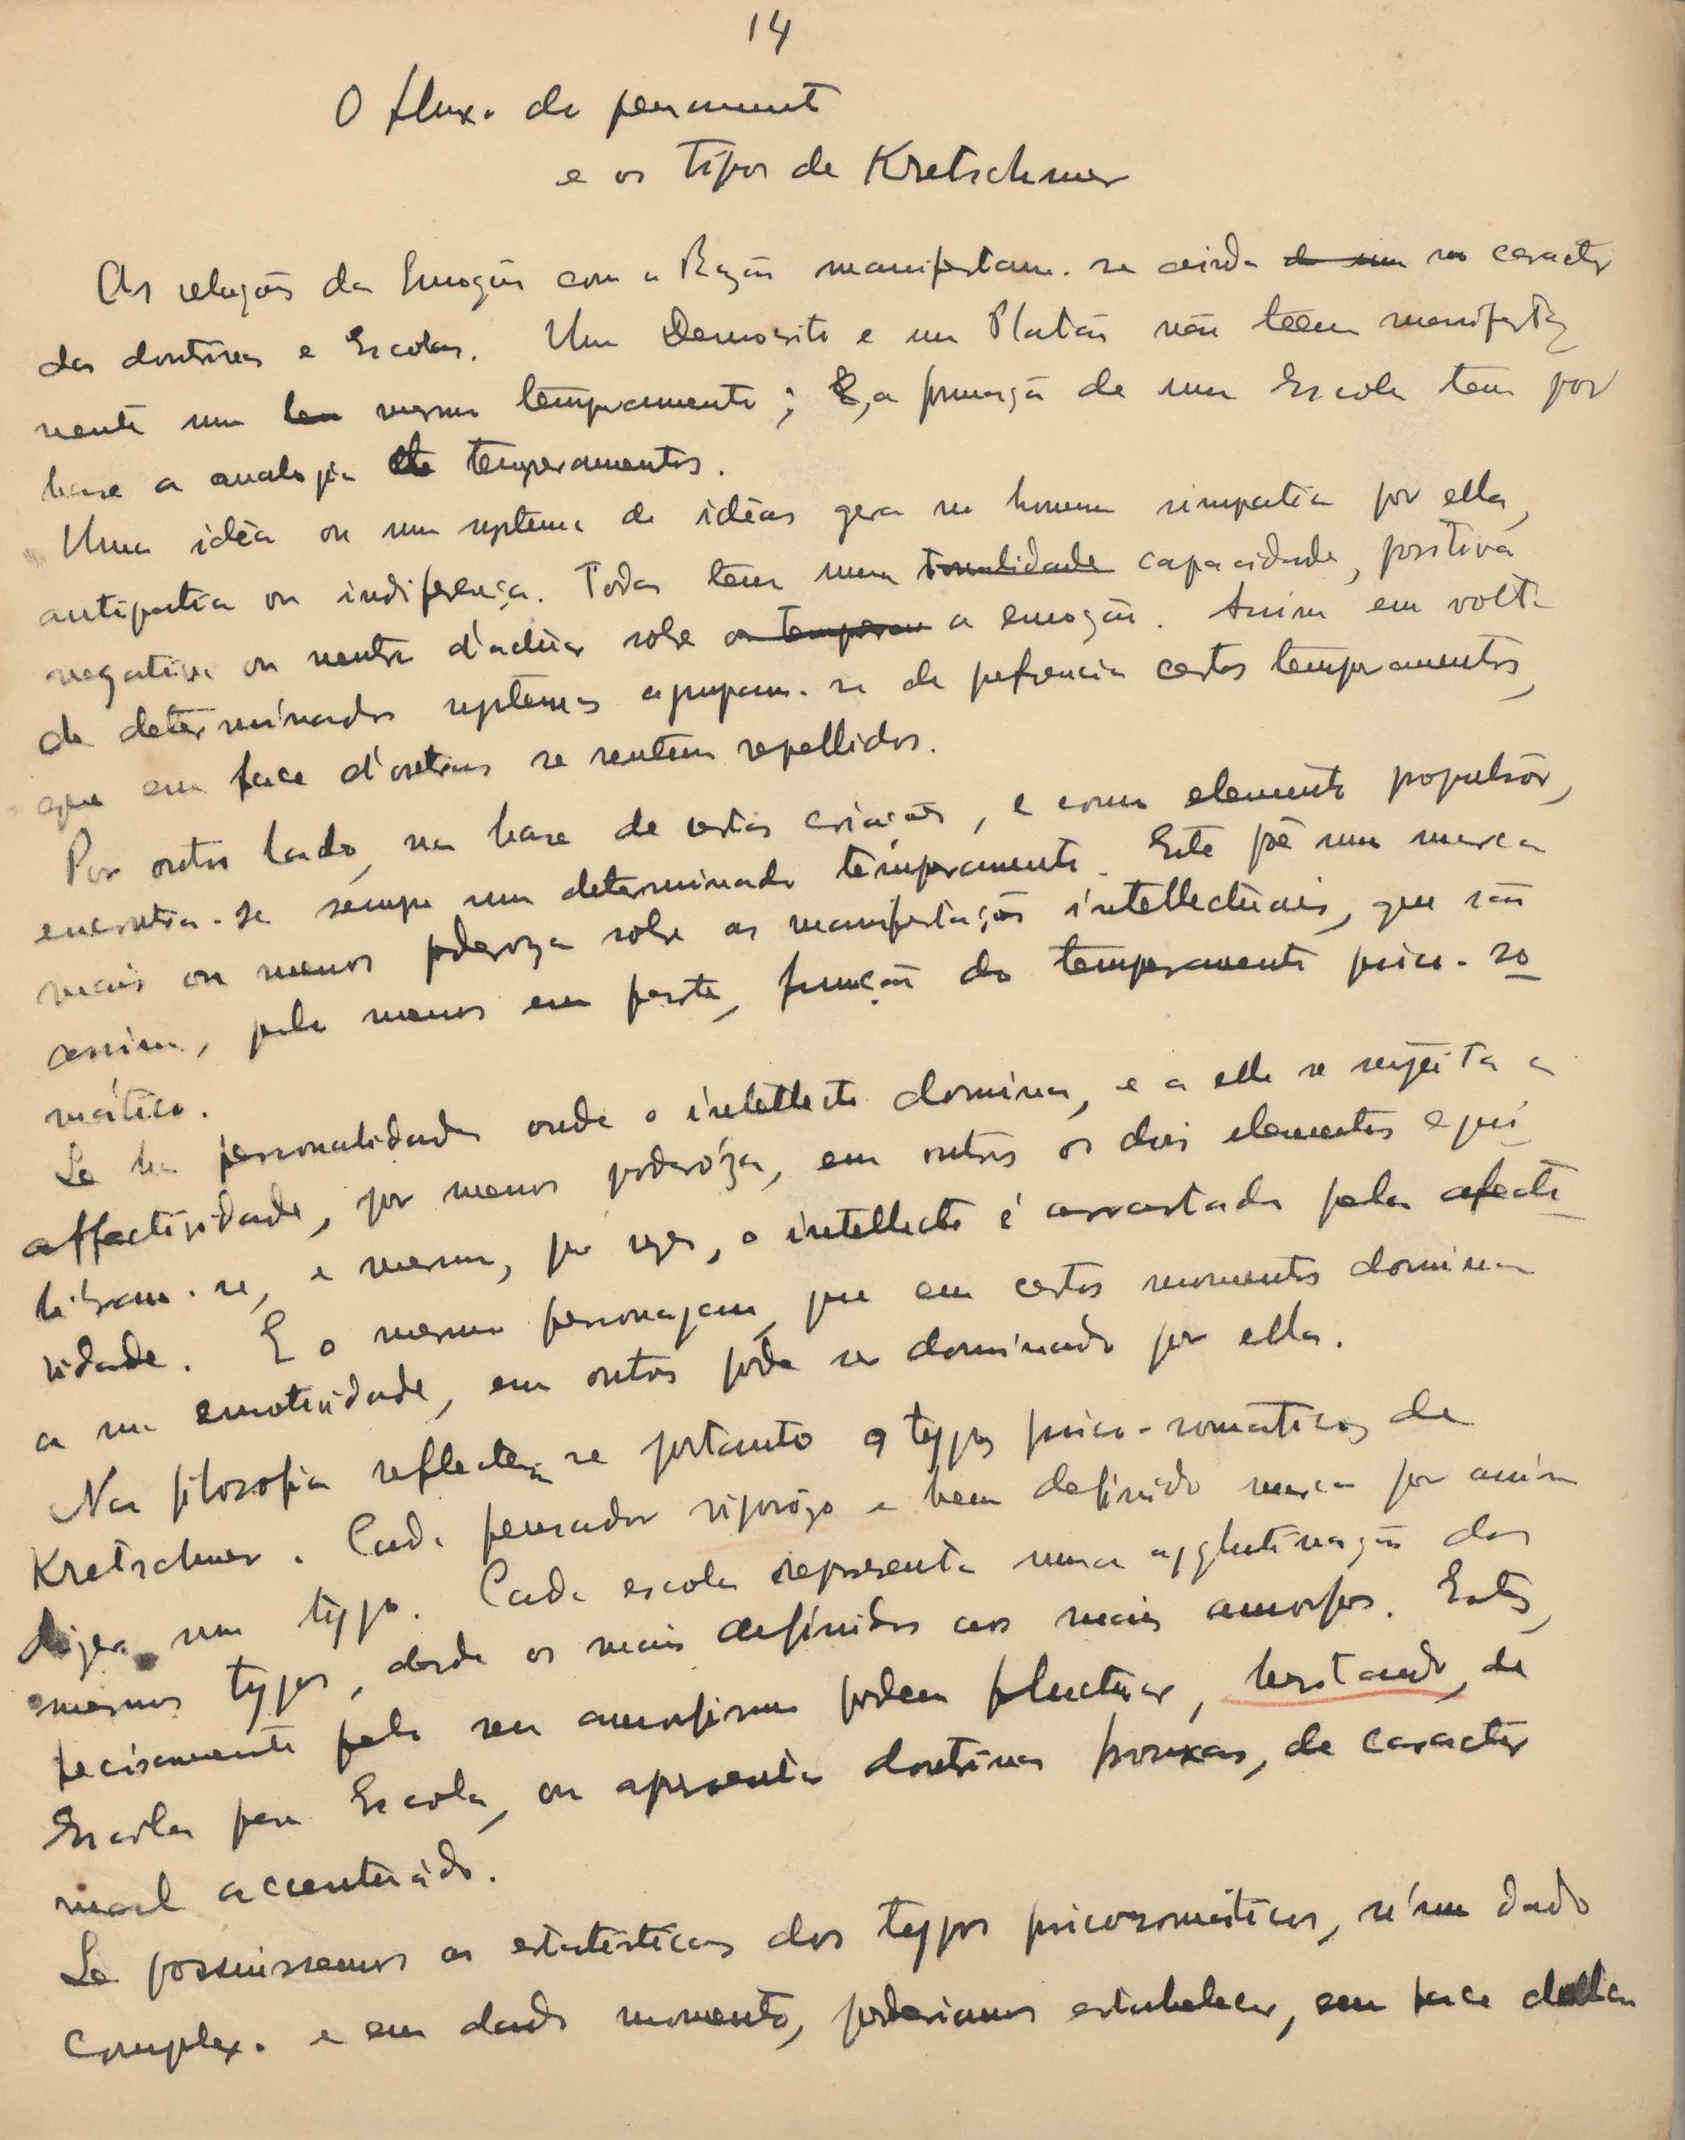 14
O fluxo do pensamento
e os tipos de Kretschmer
As relações da Emoção com a Razão manifestam-se ainda no caracter
das doutrinas e Escolas. Um Democrito e um Platão não teem manifesta
mente um mesmo temperamento; a formação de uma Escola tem por
base a analogia de temperamentos.
Uma idéa ou um systema de idéas gera no homem simpatia por ella,
antipatia ou indiferença. Todas tem uma tonalidade capacidade, positiva
negativa ou neutra d'actuar sobre o temperam a emoção. Assim em volta
de determinados systemas agrupam-se de preferencia certos temperamentos,
que em face d'outros se sentem repellidos.
Por outro lado, na base de certas criações, e como elemento propulsôr,
encontra-se sempre um determinado temperamento. Este põe uma marca
mais ou menos poderoza sobre as manifestações intellectuais, que são
assim, pelo menos em parte, função do temperamento psico-so
mático.
Se ha personalidades onde o intellecto domina, e a elle se sujeita a
affectividade, por menos poderóza, em outros os dois elementos equi
libram-se, e mesmo, por vezes, o intellecto é arrastado pela afecti
vidade. E o mesmo personagem, que em certos momentos domina
a sua emotividade, em outros póde ser dominado por ella.
Na filosofia reflectem se portanto os typos psico-somaticos de
Kretschmer. Cada pensador rigorôzo e bem definido marca por assim
dizer um typo. Cada escola representa uma agglutinação dos
mesmos typos, desde os mais definidos aos mais amorfos. Estes,
precisamente pelo seu amorfismo podem fluctuar, hesitando, de
Escola para Escola, ou apresentar doutrinas frouxas, de caracter
mal accentuádo.
Se possuissemos as estatisticas dos typos psicosomáticos, n'um dado
complexo e em dado momento, poderiamos estabelecer, em face dellas